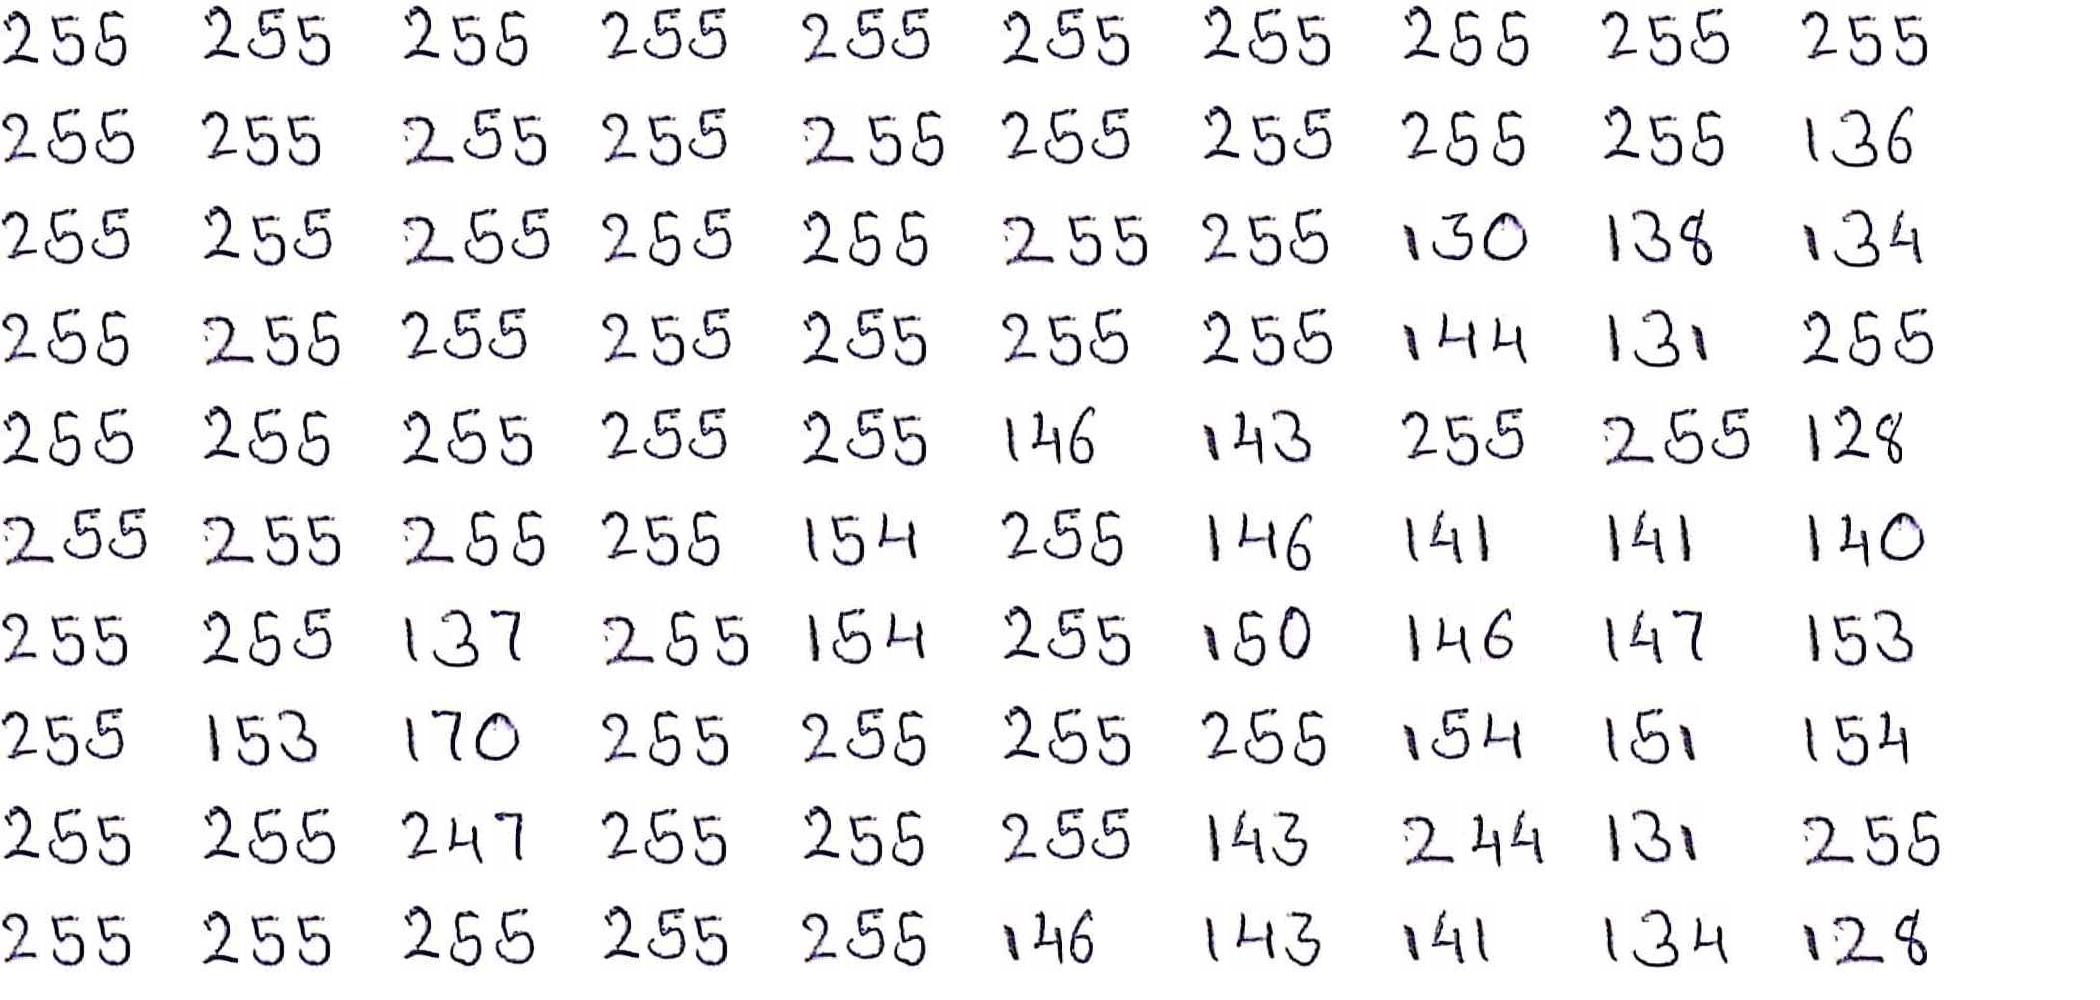 255 255 255 255 255 255 255 255 255 255
255 255 255 255 255 255 255 255 255 136
255 255 255 255 255 255 255 130 138 134
255 255 255 255 255 255 255 144 131 255
255 255 255 255 255 146 143 255 255 128
255 255 255 255 154 255 146 141 141 140
255 255 137 255 154 255 150 146 147 153
255 153 170 255 255 255 255 154 151 154
255 255 247 255 255 255 143 244 131 255
255 255 255 255 255 146 143 141 134 128